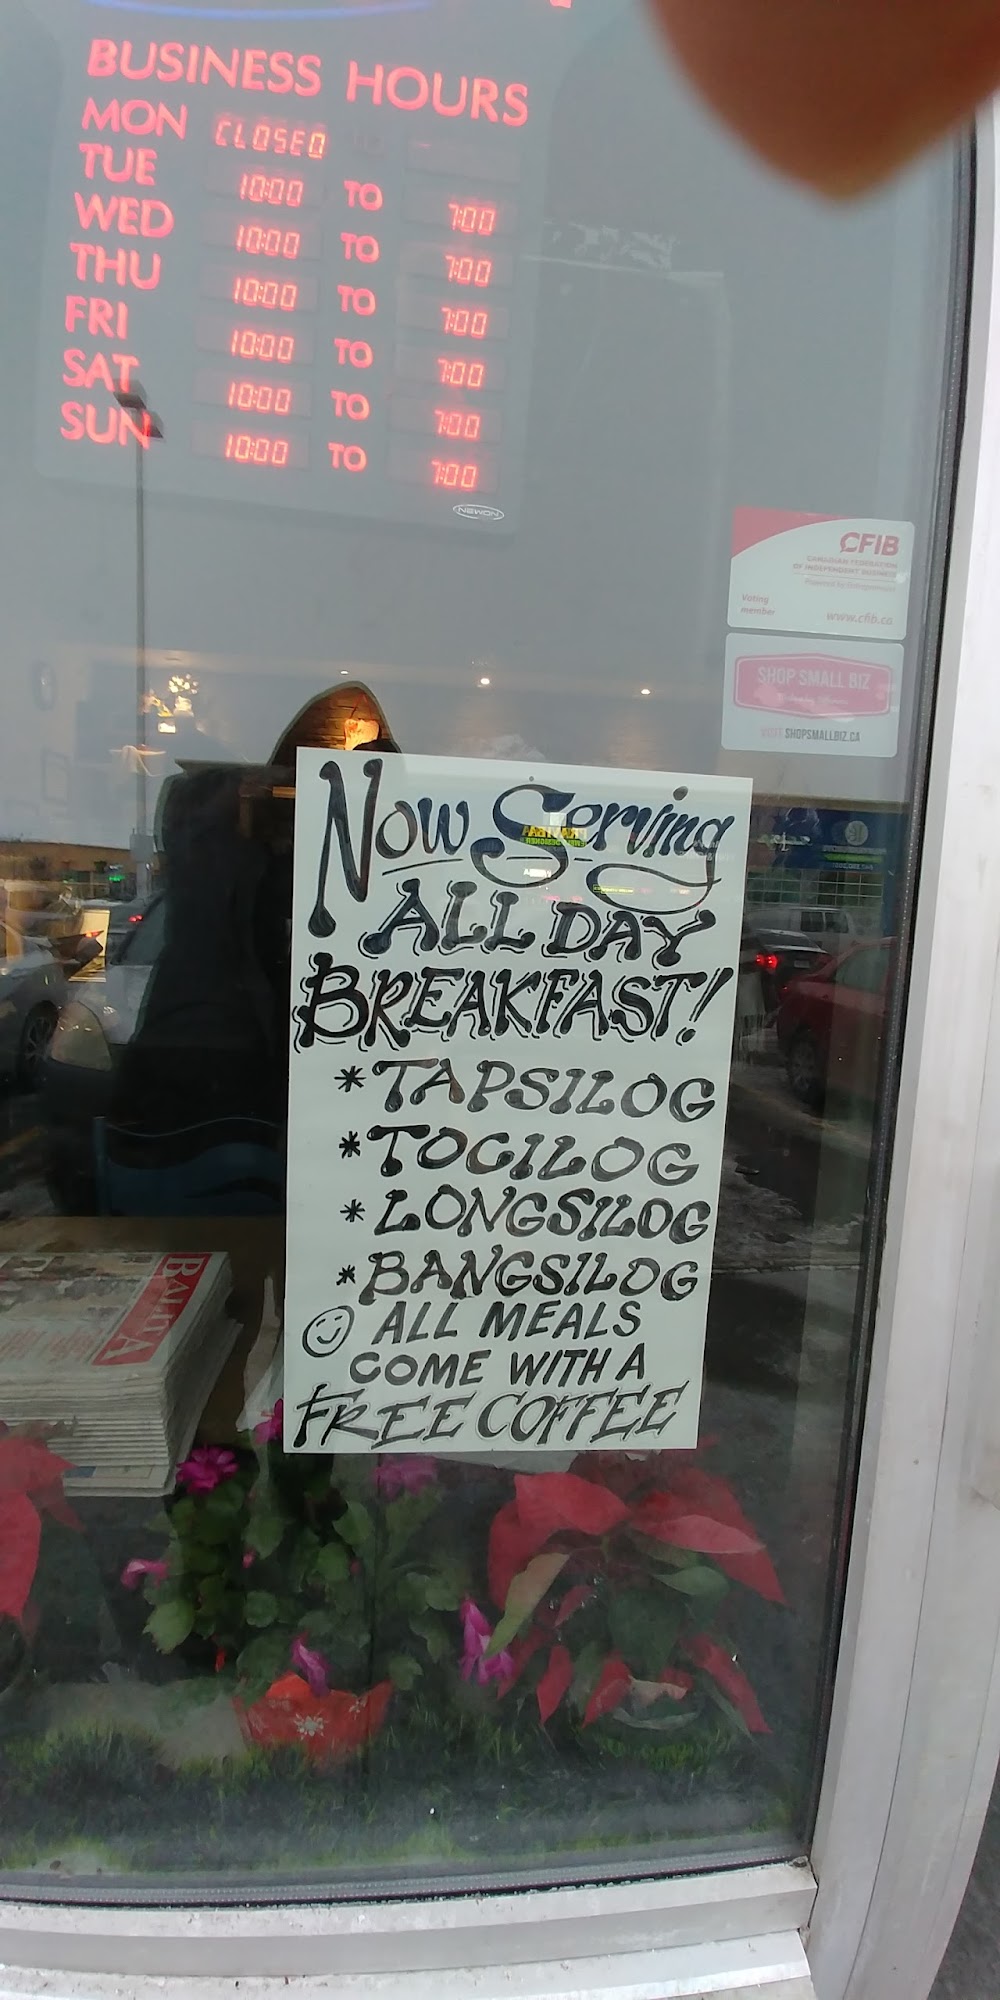 BUSINESS HOURS
MON CLOSED
TUE 10:00 TO 7:00
WED 10:00 TO 7:00
THU 10:00 TO 7:00
FRI 10:00 TO 7:00
SAT 10:00 TO 7:00
SUN 10:00 TO 7:00
NEWON
CFIB
CANADIAN FEDERATION
OF INDEPENDENT BUSINESS
Powered by Entrepreneurs
Voting
member
www.cfib.ca
SHOP SMALL BIZ
VISIT SHOPSMALLBIZ.CA
NOW Serving
ALL DAY
BREAKFAST!
* TAPSILOG
* TOCILOG
* LONGSILOG
* BANGSILOG
ALL MEALS
COME WITH A
FREE COFFEE
BALITA